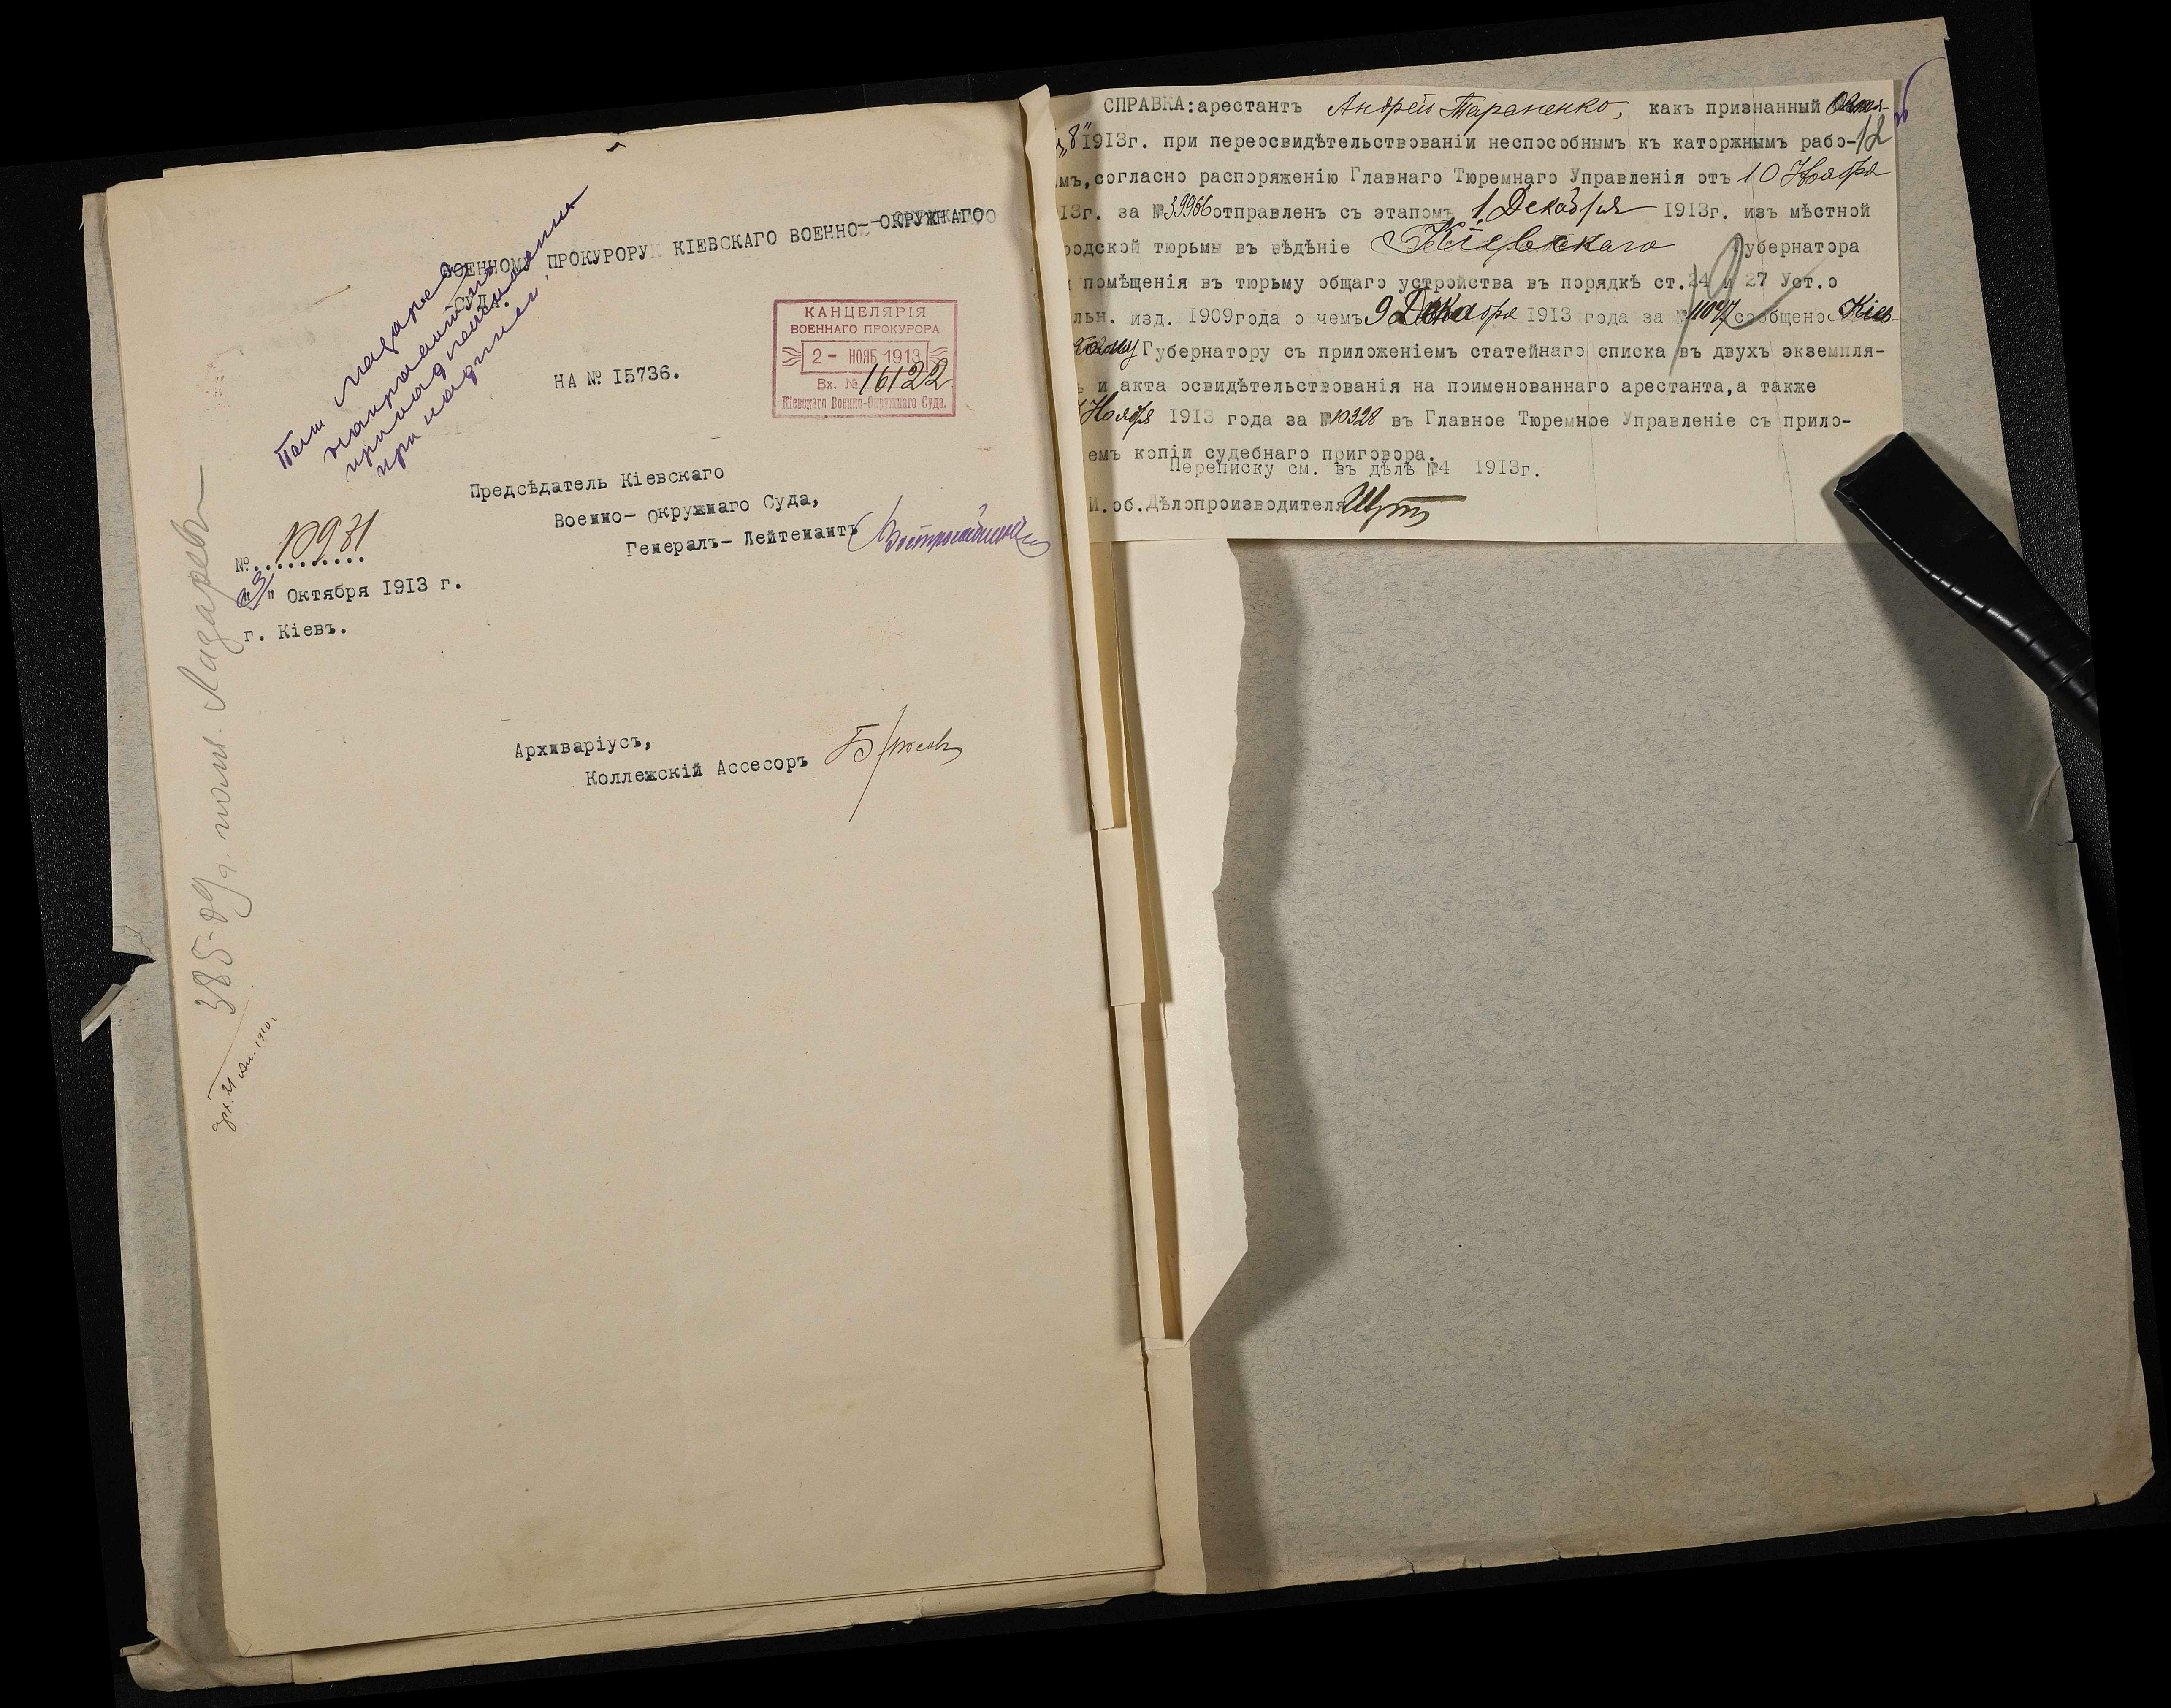 ВОЕННОМУ ПРОКУРОРУ КІЕВСКАГО ВОЕННО-ОКРУЖНАГО
СУДА.
КАНЦЕЛЯРІЯ
ВОЕННАГО ПРОКУРОРА
2- НОЯБ 1913
Вх. № 16122
Кіевскаго Военно-Окружнаго Суда.
НА № I5736.
Предсѣдатель Кіевскаго
Военно- Окружнаго Суда,
Генералъ- Лейтенантъ
№...........
" " Октября I9I3 г.
г. Кіевъ.
Архиваріусъ,
Коллежскій Ассесоръ
385-09 г. Лазаревъ
СПРАВКА:арестантъ Андрей Тараненко, какъ признанный
„8" I9I3г. при переосвидѣтельствованіи неспособнымъ къ каторжнымъ рабо-
мъ,согласно распоряженію Главнаго Тюремнаго Управленія отъ 10 Ноября
I3г. за № 39966 отправленъ съ этапомъ 1 Декабря I9I3г. изъ мѣстной
родской тюрьмы въ вѣдѣніе Кіевскаго Губернатора
помѣщенія въ тюрьму общаго устройства въ порядкѣ ст.24 и 27 Уст.о
льн. изд. I909года о чемъ 9 Декабря I9I3 года за № 11047 сообщено Кіев-
скому Губернатору съ приложеніемъ статейнаго списка въ двухъ экземпля-
ъ и акта освидѣтельствованія на поименованнаго арестанта,а также
Ноября I9I3 года за № 10328 въ Главное Тюремное Управленіе съ прило-
емъ копіи судебнаго приговора.
Переписку см. въ дѣлѣ №4 I9I3г.
И.об.Дѣлопроизводителя
12